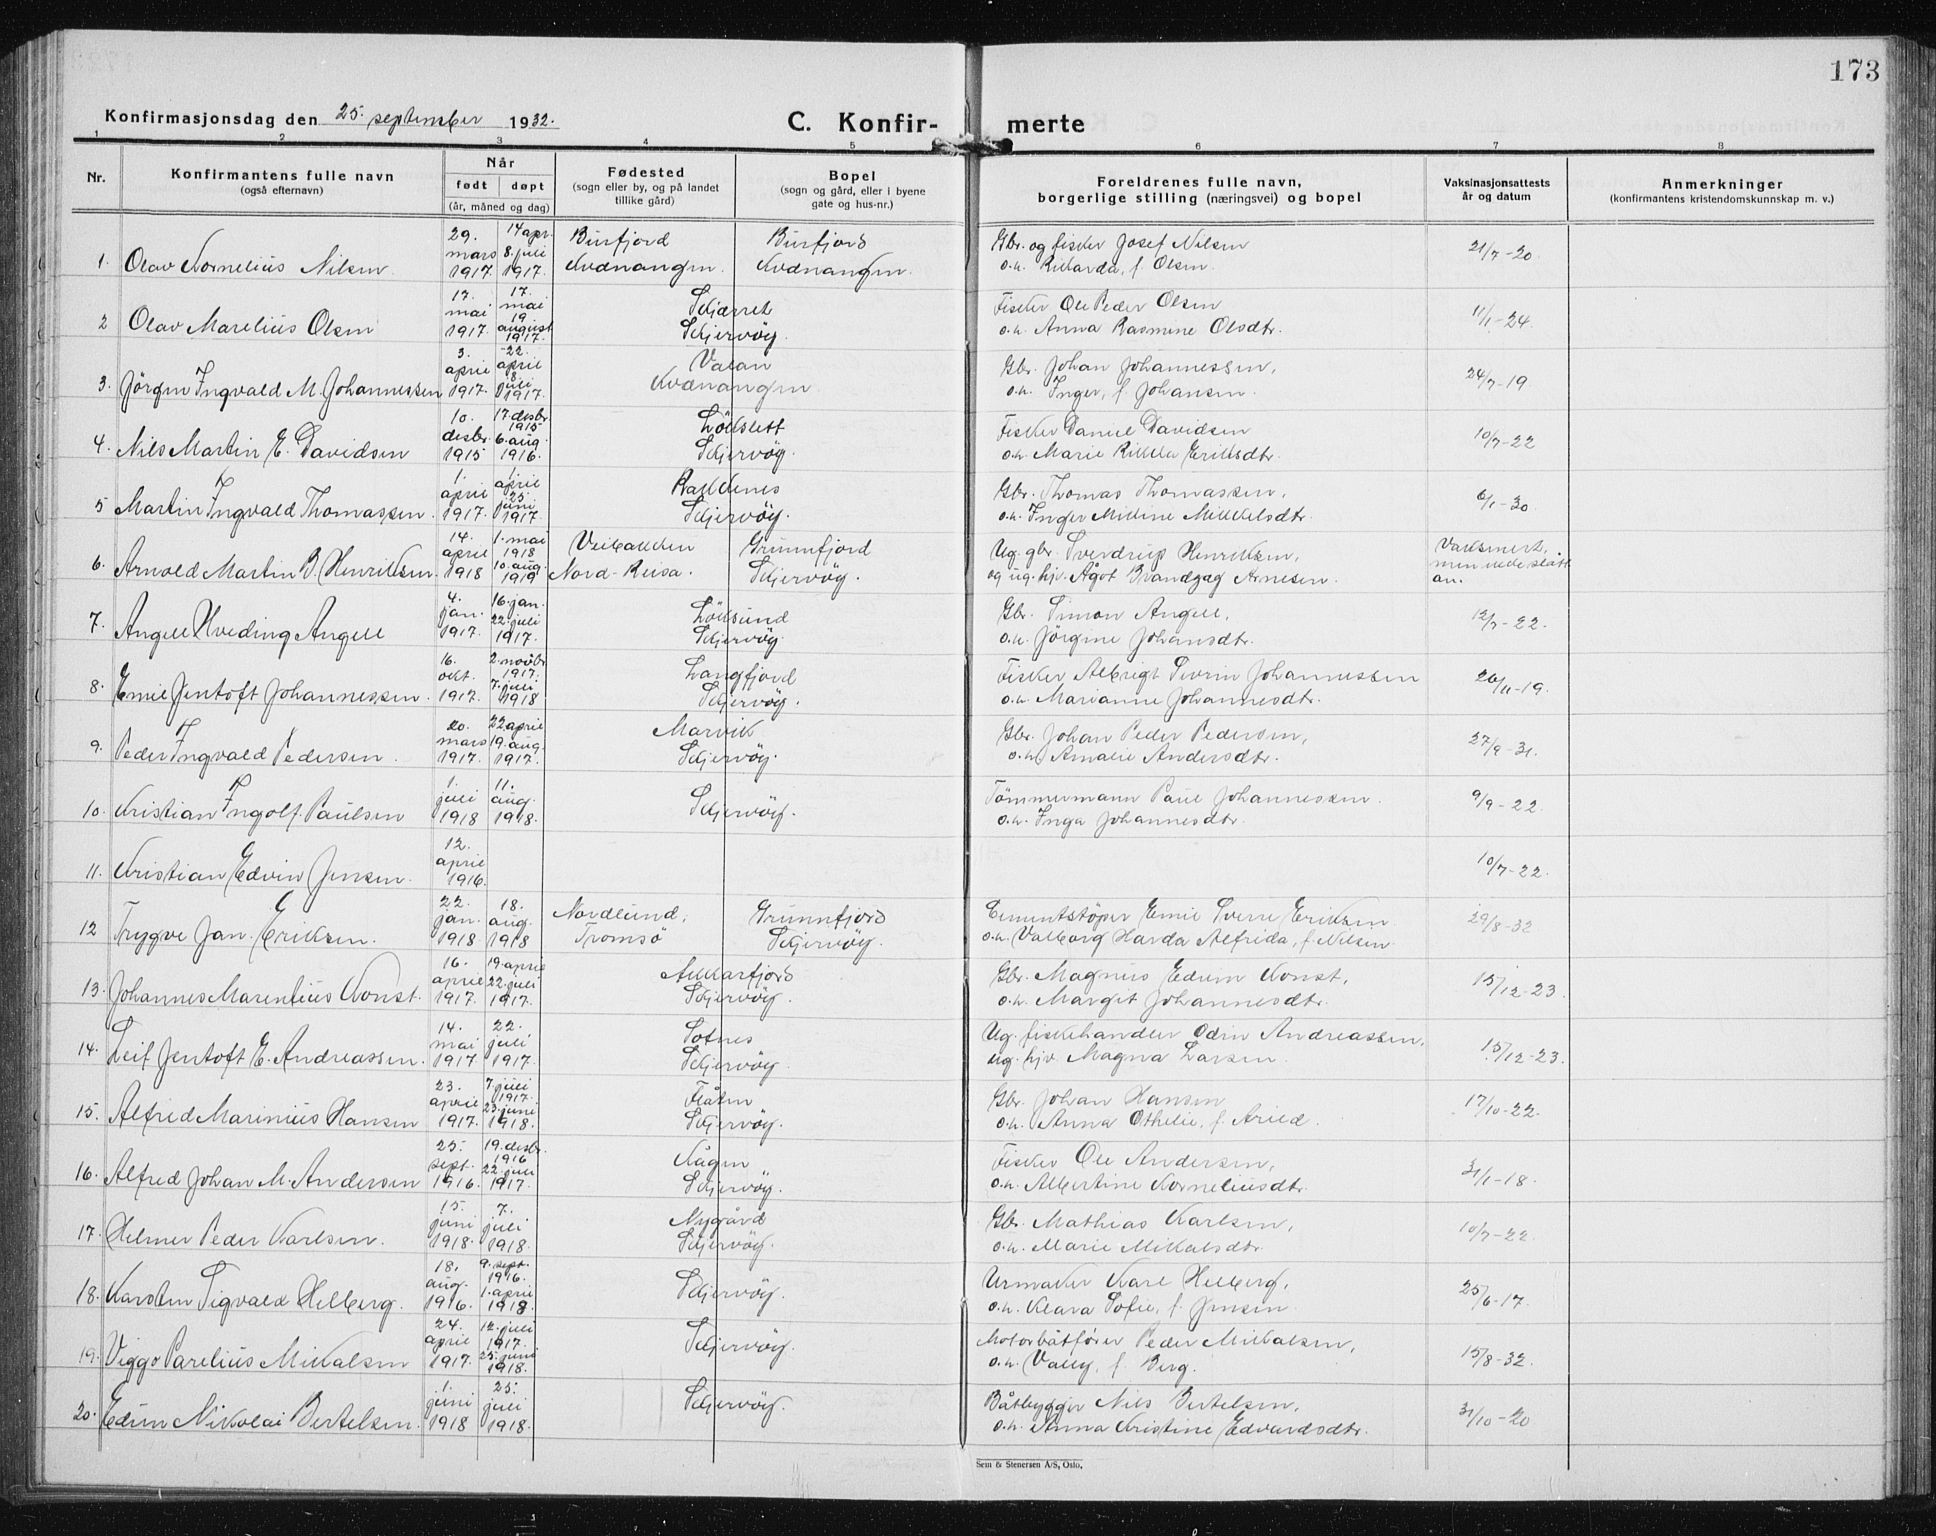 173
Konfirmasjonsdag den 25. september 1932.
C. Konfir- merte
1 2 3 4 5 6 7 8
Nr. Konfirmantens fulle navn (også efternavn) Når født døpt (år, måned og dag) Fødested (sogn eller by, og på landet tillike gård) Bopel (sogn og gård, eller i byene gate og hus-nr.) Foreldrenes fulle navn, borgerlige stilling (næringsvei) og bopel Vaksinasjonsattests år og datum Anmerkninger (konfirmantens kristendomskunnskap m. v.)
1. Olav Kornelius Nilsen. 29. mars 1917. 14 apr. 8. juli 1917. Burfjord Kvænangen. Burfjord Kvænangen. Gbr. og fisker Josef Nilsen o.h. Rikarda, f. Olsen. 21/7-20.
2 Olav Marelius Olsen 17. mai 1917. 17. mai 19. august 1917. Skjæret Skjervöy. Fisker Ole Peder Olsen o.h. Anna Rasmine Olsdtr. 11/1-24.
3. Jörgen Ingvald M. Johannessen 3. april 1917. 22. april 8 juli 1917. Valan Kvænangen Gbr. Johan Johannessen, o.h. Inger, f. Johansen. 24/7-19.
4. Nils Martin E. Davidsen 10. desbr. 1915 17. desbr. 1915 6. aug. 1916. Lökslett Skjervöy. Fisker Daniel Davidsen o.h. Marie Rikka Eriksdtr. 10/7-22
5 Martin Ingvald Thomassen. 1. april 1917. 1. april 25 juni 1917. Rakkenes Skjervöy. Gbr. Thomas Thomassen, o.h. Inger Mikkine Mikkelsdtr. 6/1-30
6. Arnold Martin B. Henriksen. 14. april 1918 1. mai 1918 10. aug. 1919 Veibakken Nord-Reisa. Grunnfjord Skjervöy. Ug. gbr. Sverdrup Henriksen, og ug. hj. Ågot Brandzæg Arnesen. Vaksinert, men ikke slått an.
7. Angell Hveding Angell 4. jan. 1917. 16. jan. 22. juli 1917. Löksund Skjervöy. Gbr. Simon Angell, o.h. Jörgine Johansdtr. 12/7-22.
8. Emil Jentoft Johannessen. 16. okt. 1917. 2. novbr. 1917. 7. juli 1918 Langfjord Skjervöy. Fisker Albrigt Severin Johannessen o.h. Marianne Johannesdtr. 26/11-19.
9. Peder Ingvald Pedersen. 20. mars 1917. 22 april 19. aug. 1917. Marvik Skjervöy. Gbr. Johan Peder Pedersen, o.h. Amalie Andersdtr. 27/9-31.
10. Kristian Ingolf. Paulsen 1. juli 1918 11. aug. 1918. Skjervöy. Tömmermann Paul Johannessen. o.h. Inga Johannesdtr. 9/9-22.
11. Kristian Edvin Jensen. 12. april 1916. 10/7-22.
12 Trygve Jan. Eriksen. 22. jan. 1918 18. aug. 1918 Nordlund, Tromsö Grunnfjord Skjervöy. Cementstöper Emil Sverre Eriksen o.h. Valborg Harda Alfrida, f. Nilsen. 29/8-32
13. Johannes Marenlius Konst. 16. april 1917. 19. april 22. juli 1917. Akkarfjord Skjervöy. Gbr. Magnus Edvin Konst, o.h. Margit Johannesdtr. 15/12-23.
14. Leif Jentoft E. Andreassen. 14. mai 1917 22. juli 1917. Sotnes Skjervöy. Ug. fiskehandler Odin Andreassen, ug. hj. Magna Larsen. 15/12-23.
15. Alfred Marinius Hansen 23. april 1917. 7. juli 1917. 23. juni 1918. Flåten Skjervöy. Gbr. Johan Hansen o.h. Anna Othelie, f. Arild. 17/10-22.
16. Alfred Johan M. Andersen 25. sept. 1916. 19. desbr. 1916 22. juli 1917. Kågen Skjervöy. Fisker Ole Andersen, o.h. Albertine Korneliusdtr. 31/1-18.
17. Helmer Peder Karlsen. 15. juni 1918. 7. juli 1918. Nygård Skjervöy. Gbr. Mathias Karlsen, o.h. Marie Mikalsdtr. 10/7-22
18. Karsten Sigvald Helberg. 18. aug. 1916. 9. sept. 1916. 1. april 1918. Skjervöy. Urmaker Karl Helberg, o.h. Klara Sofie, f. Jensen 25/6-17.
19. Viggo Parelius Mikalsen 24. april 1917. 12. juli 1917. 23. juni 1918. Skjervöy. Motorbåtfører Peder Mikalsen, o.h. Vally, f. Berg. 15/8-32.
20. Edvin Nikolai Bertelsen. 1. juni 1918 25. juli 1918. Skjervöy. Båtbygger Nils Bertelsen, o.h. Anna Kristine Edvardsdtr. 31/10-20
Sem & Stenersen A/S, Oslo.